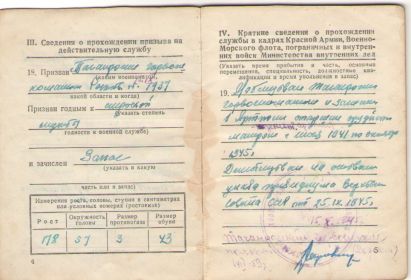 III. Сведения о прохождении призыва на
действительную службу
18. Призван Таганрогским горвоен-
каким военкоматом,
коматом
какой области и когда)
Призван годным к
(указать степень
годности к военной службе)
и зачислен Запас
(указать в какую
часть или в запас)
Измерения роста, головы, ступни в сантиметрах
или условных номерах (ростовках)
Рост
Окружность головы
Размер противогаза
Размер обуви
178
57
3
43
4
IV. Краткие сведения о прохождении
службы в кадрах Красной Армии, Военно-
Морского флота, пограничных и внутрен-
них войск Министерства внутренних дел
(Указать время прибытия и часть, основные
перемещения, специальность, должностные ква-
лификации и время увольнения в запас)
19. Мобилизован Таганрогским
горвоенкоматом
1941 по октябрь
1945.
Демобилизован на основании
указа президиума Верховн.
Совета СССР от 25.IX.1945.